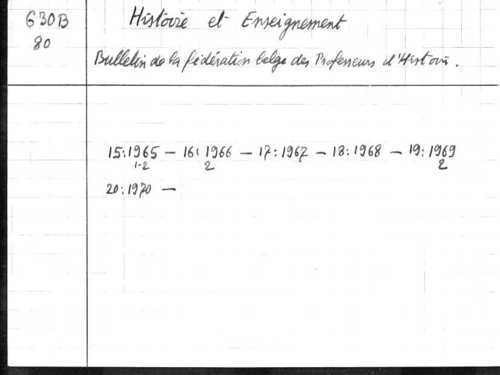 630B
80
Histoire et Enseignement
Bulletin de la fédération belge des Professeurs d'Histoire.
15:1965 — 16:1966 — 17:1967 — 18:1968 — 19:1969
1-2 2 2
20:1970 —